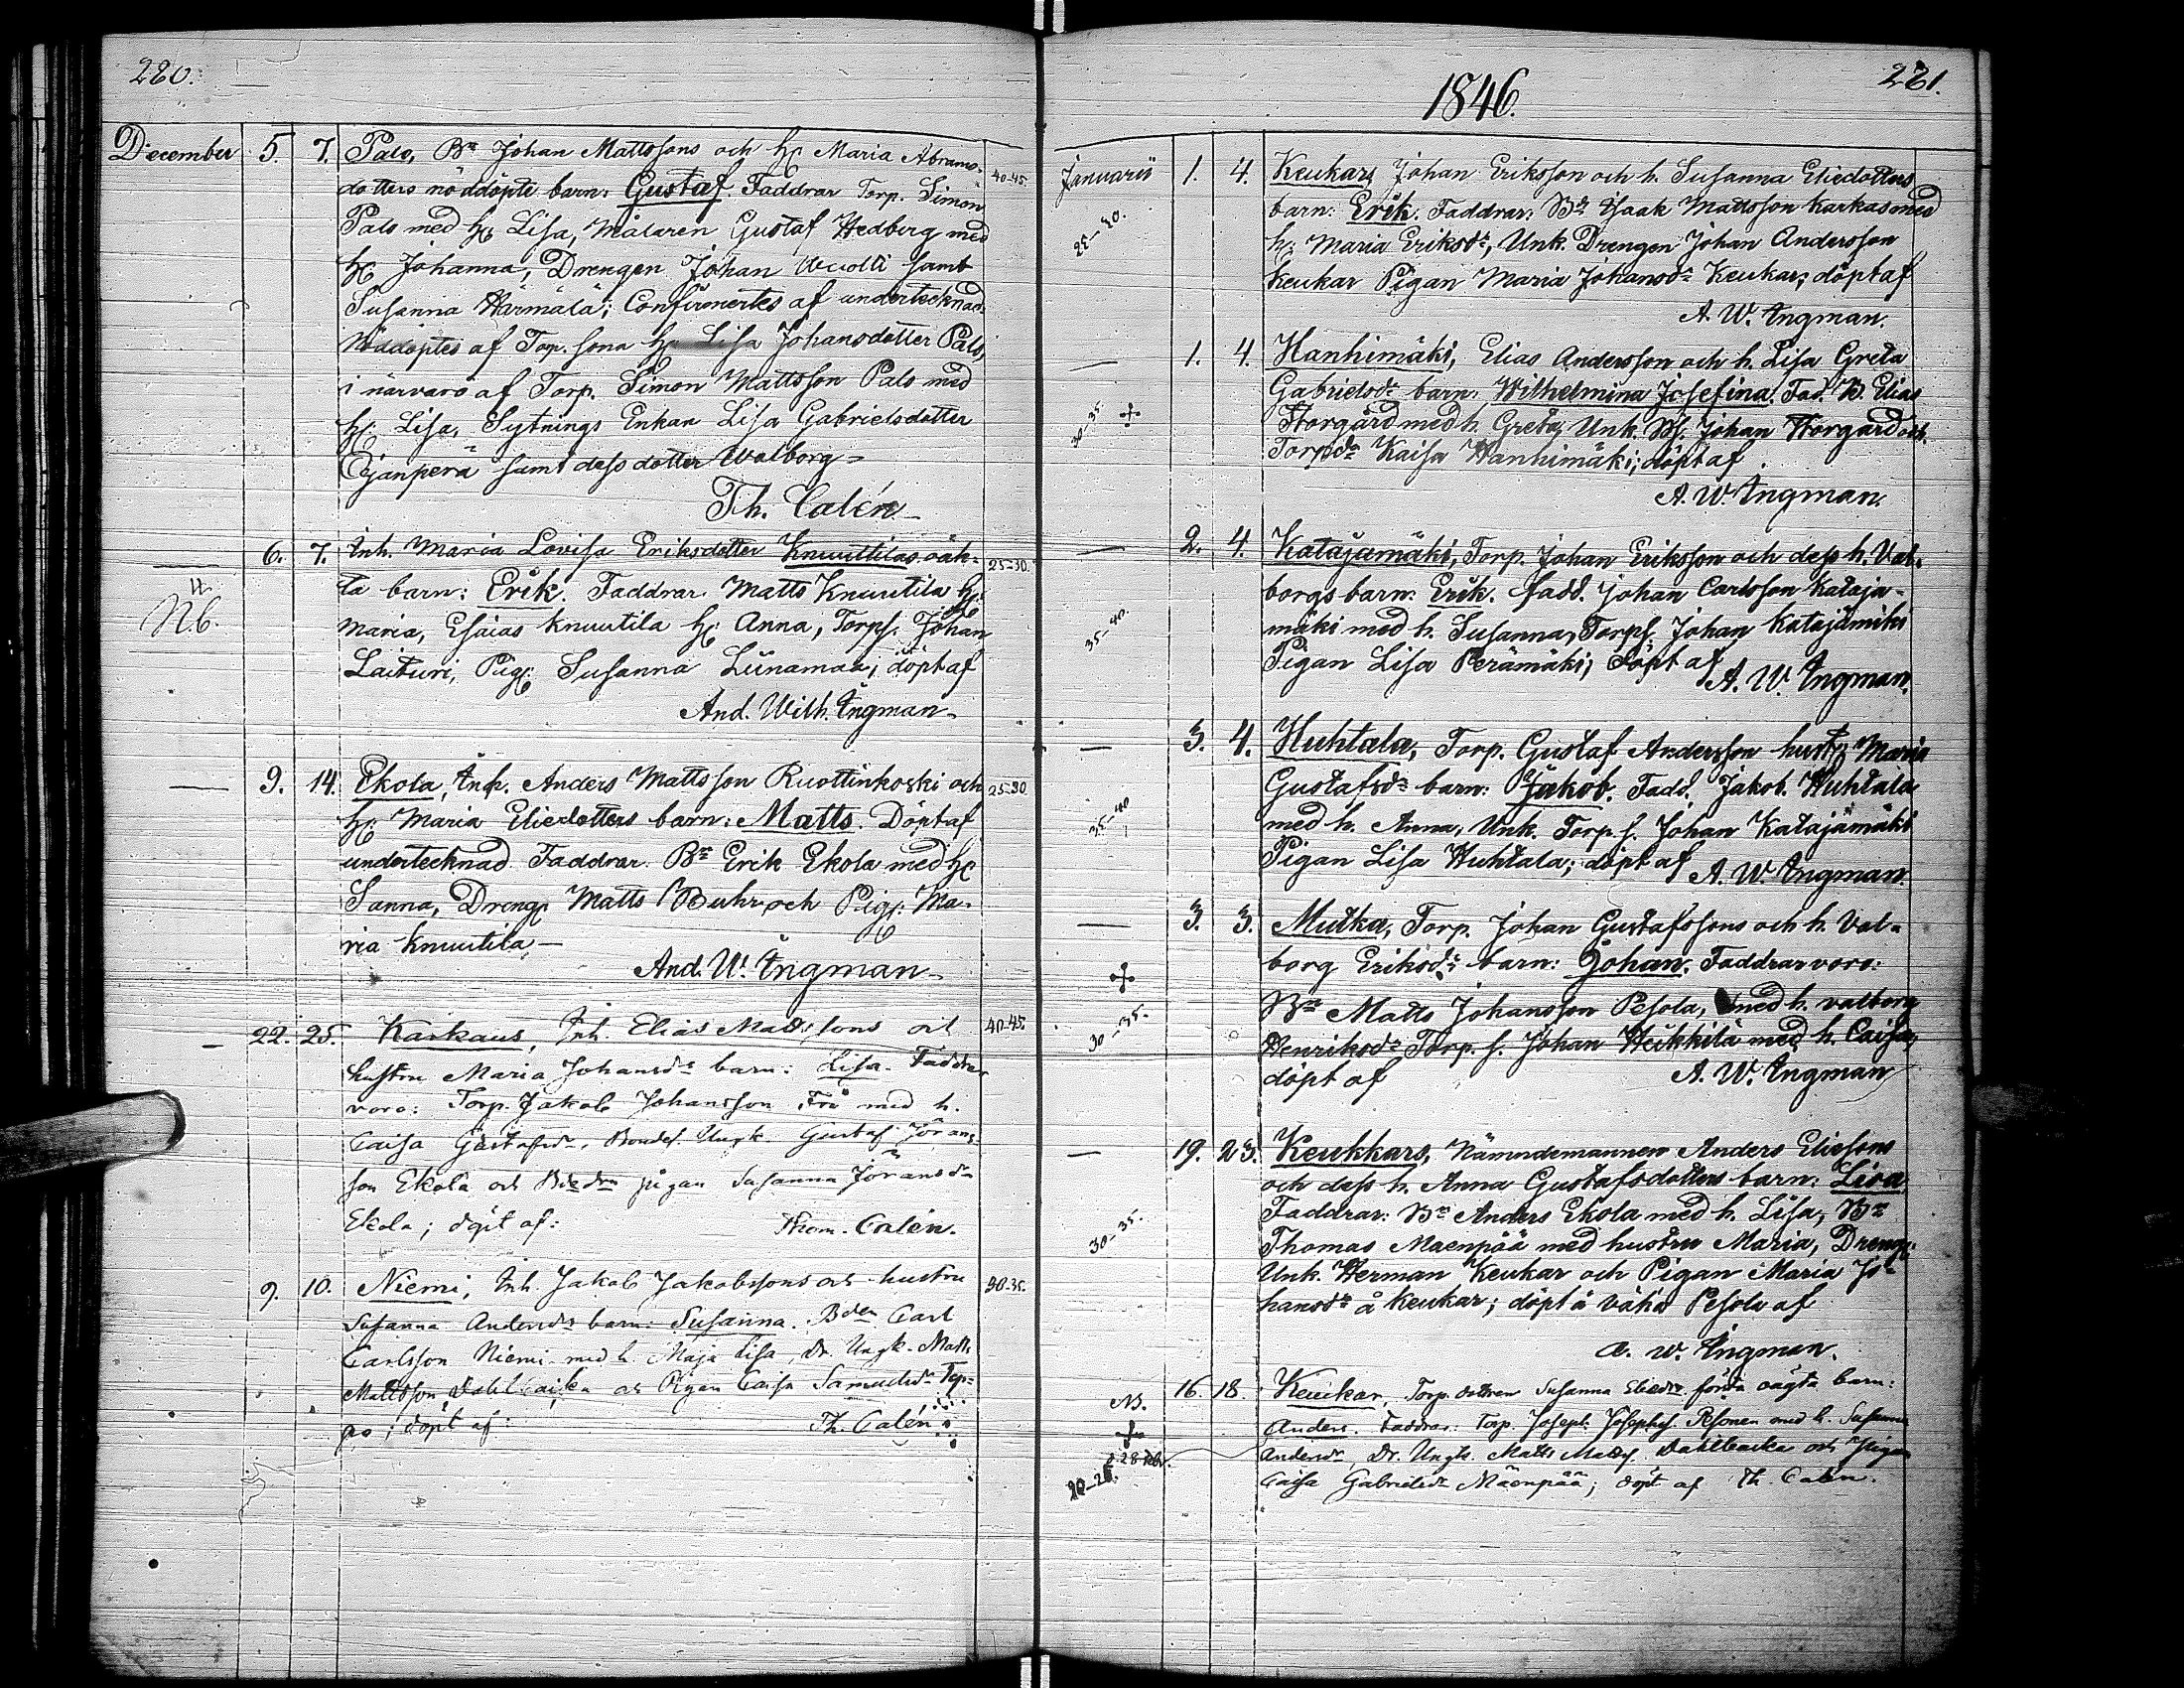 220.
December 5. 7. Palo, Bn Johan Mattssons och hc Maria Abrams-
dotters nöddöpte barn: Gustaf. Faddrar Torp. Simon 40-45.
Palo med hc Lisa, Målaren Gustaf Hedberg med
hc Johanna, Drengen Johan samt
Susanna Härmälä; Confirmertes af undertecknad.
Nöddöptes af Torp. sona hc Lisa Johansdotter Palo,
i närvaro af Torp. Simon Mattsson Palo med
hc Lisa, Sytnings Enkan Lisa Gabrielsdotter
samt dess dotter Walborg
Th. Calén
6. 7. Inh. Maria Lovisa Eriksdotter Knuuttilas oäk- 25-30.
ta barn: Erik. Faddrar Matts Knuutila hc
N.b. Maria, Esaias Knuutila hc Anna, Torps. Johan
Laituri, Pig. Susanna Liinamaa, döpt af
And. Wilh. Ingman
9. 14. Ekola, Inh. Anders Mattsson Ruottinkoski och 25-30
hc Maria Eliedotters barn: Matts. Döpt af
undertecknad Faddrar. Bn Erik Ekola med hc
Sanna, Dreng Matts Buhr och Pig. Ma-
ria Knuutila
And. W. Ingman
22. 25. Karkaus, Inh. Elias Mattssons och 40-45.
hustru Maria Johansdr barn: Lisa. Faddrar
voro: Torp. Jakob Johansson med h.
Caisa Gustafsdr, Bondes. Ungk. Gustaf Jörans-
son Ekola och pigan Susanna Jöransdr
Ekola; döpt af: Thom. Calén.
9. 10. Niemi, Inh. Jakob Jakobssons och hustru 30-35.
Susanna Andersdr barn: Susanna. Bden Carl
Carlsson Niemi med h. Maja Lisa, Dr. Ungk. Matts
Mattsson Dahlbacka och Pigan Caisa Samuelsdr Tep-
po; döpt af: Th. Calén
1846. 221.
Januarii 1. 4. Keukars Johan Eriksson och h. Susanna Eliedotters
25-30. barn: Erik. Faddrar: Bn Isaak Mattsson Karkas med
h: Maria Eriksdr, Unk. Drengen Johan Andersson
Keukar Pigan Maria Johansdr Keukar; döpt af
A. W. Ingman.
1. 4. Hanhimäki, Elias Andersson och h. Lisa Greta
Gabrielsdr barn: Wilhelmina Josefina. Fad. B. Elias
30-35. Storgård med h. Greta, Unk. Bs. Johan Storgård och
Torpdr Kaisa Hanhimäki; döpt af
A. W. Ingman.
2. 4. Katajamäki, Torp. Johan Eriksson och dess h. Val-
borgs barn: Erik. Fadd. Johan Carlsson Kataja-
35-40. mäki med h. Susanna, Torps. Johan Katajamäki
Pigan Lisa Perämäki; döpt af
A. W. Ingman.
3. 4. Huhtala, Torp. Gustaf Andersson hustr. Maria
Gustafsdr barn: Jakob. Fadd. Jakob Huhtala
35-40 med h. Anna, Unk. Torp. s. Johan Katajamäki
Pigan Lisa Huhtala; döpt af A. W. Ingman.
3. 3. Mutka, Torp. Johan Gustafssons och h. Val-
borg Eriksdr barn: Johan. Faddrar voro:
Bn Matts Johansson Pesola, med h. Valborg
30-35. Henriksdr Torp. s. Johan Heikkilä med h. Caisa,
döpt af A. W. Ingman
19. 23. Keukkars, Nämndemannen Anders Eliesons
och dess h. Anna Gustafsdotters barn: Lisa
Faddrar: Bn Anders Ekola med h. Lisa, Bn
30-35. Thomas Maenpää med hustru Maria, Dreng:
Unk. Herman Keukar och Pigan Maria Jo-
hansdr å Keukar; döpt å Pesola af
A. W. Ingman.
16. 18. Keukar, Torp. dottren Susanna Eliedr första oägta barn:
NB. Anders. Faddrar: Torp. Joseph Josephs. Pesonen med h. Susanna
28 Febr. Andersdr, Dr. Ungk. Matts Matts. Dahlbacka och Pigan
20-25. Caisa Gabrielsdr Mäenpää; döpt af Th Calén.